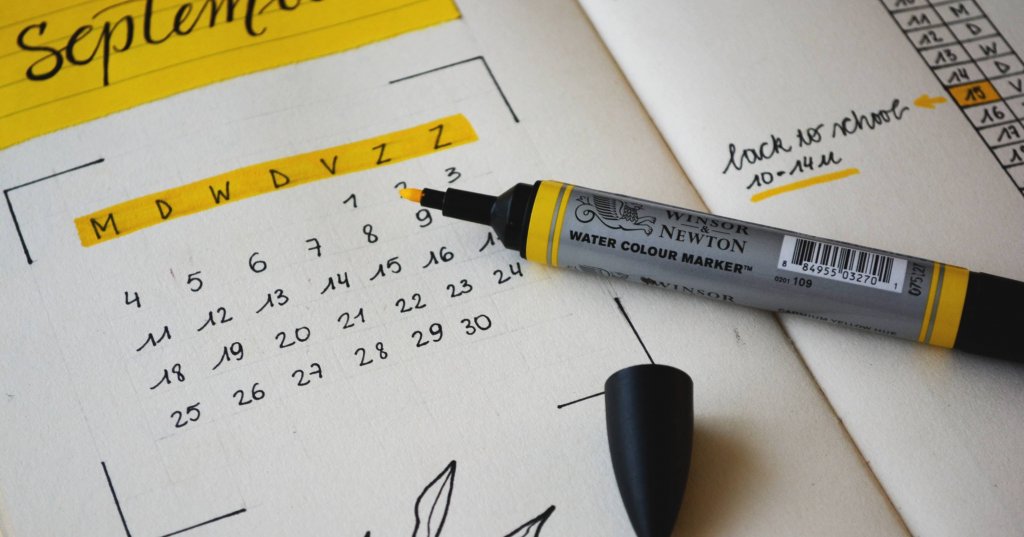 M D W D V Z Z
1 2 3
4 5 6 7 8 9
11 12 13 14 15 16
18 19 20 21 22 23 24
25 26 27 28 29 30
back to school
10-14u
11 M
12 D
13 W
14 D
15 V
16
17
WINSOR
&
NEWTON
WATER COLOUR MARKER™
WINSOR
8 84955 03270 1
0201 109